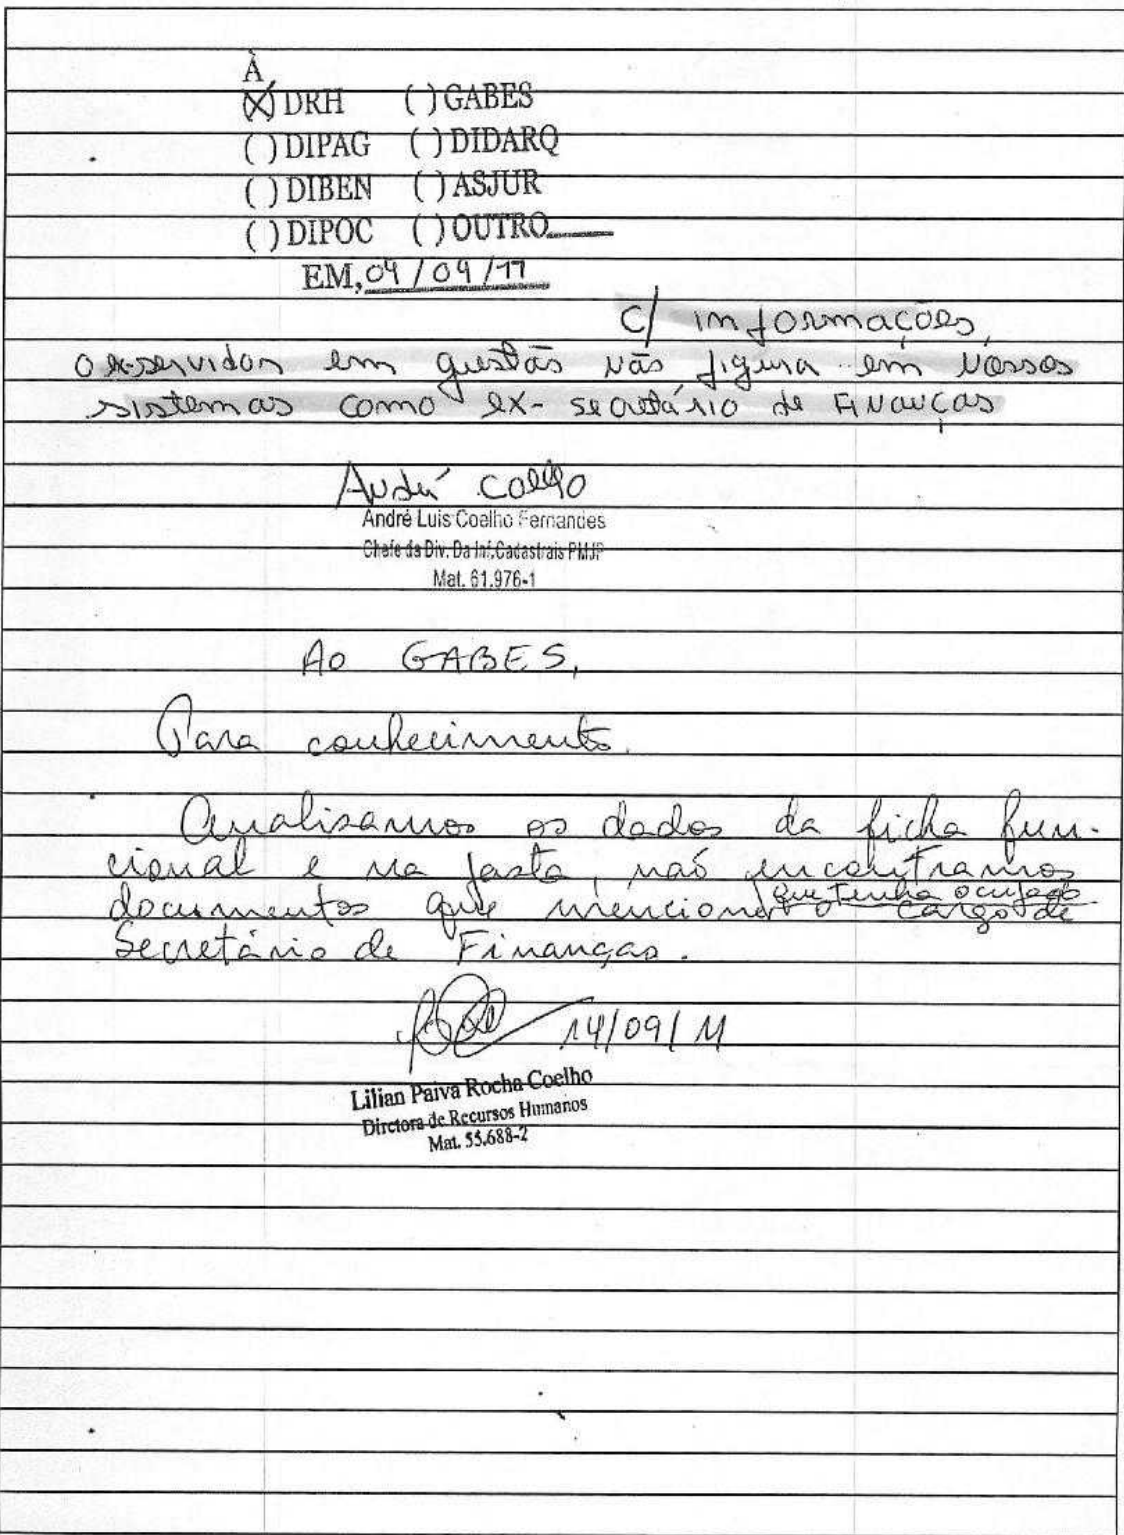 À
(X) DRH ( ) GABES
( ) DIPAG ( ) DIDARQ
( ) DIBEN ( ) ASJUR
( ) DIPOC ( ) OUTRO
EM, 04/09/17
C/ informações,
o ex-servidor em questão não figura em nossos
sistemas como ex-secretário de Finanças
André Coelho
André Luis Coelho Fernandes
Chefe da Div. Da Inf. Cadastrais PMJP
Mat. 61.976-1
Ao GABES,
Para conhecimento.
Analisamos os dados da ficha fun-
cional e na pasta, não encontramos
que tenha ocupado
documentos que mencione o cargo de
Secretário de Finanças.
14/09/11
Lilian Paiva Rocha Coelho
Dirctora de Recursos Humanos
Mat. 55.688-2